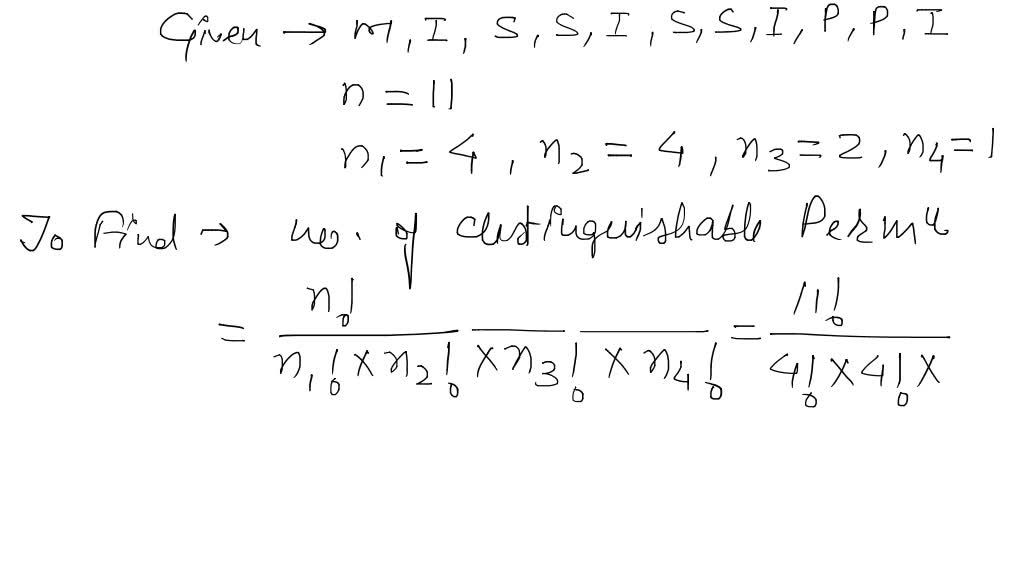 Given → M, I, S, S, I, S, S, I, P, P, I
n = 11
n₁ = 4, n₂ = 4, n₃ = 2, n₄ = 1
To Find → no. of distinguishable Perm
= n! / n₁! × n₂! × n₃! × n₄! = 11! / 4! × 4! ×